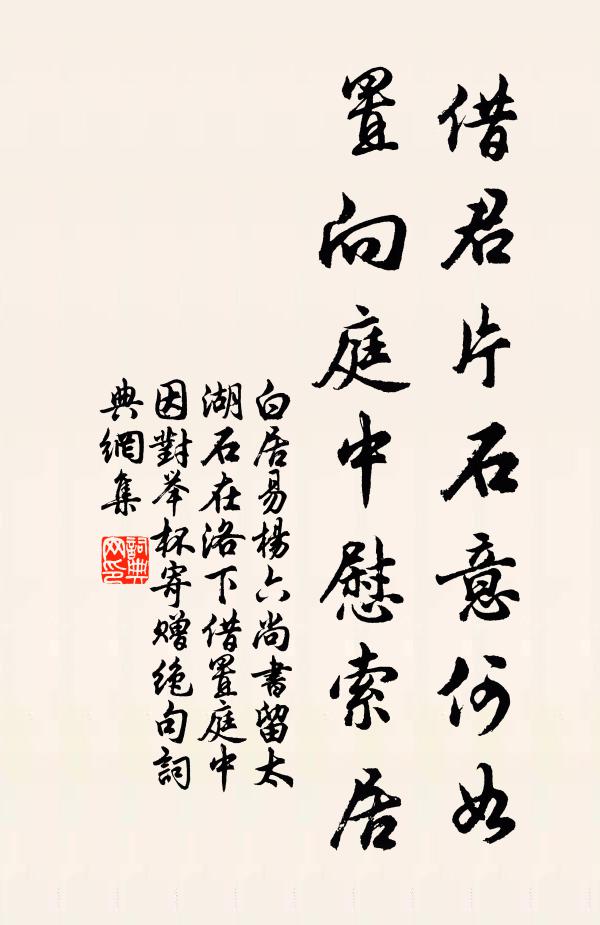 借君片石意何如
置向庭中慰索居
白居易楊六尚書留太
湖石在洛下借置庭中
因對举杯寄赠绝句詞
典網集
詞典
网印